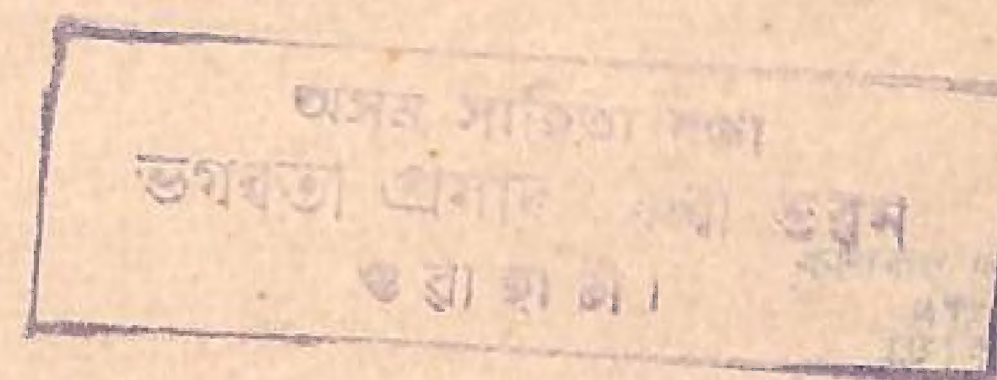 অসম সাহিত্য সভা
ভগবতী প্ৰসাদ ভৱন
গুৱাহাটী।